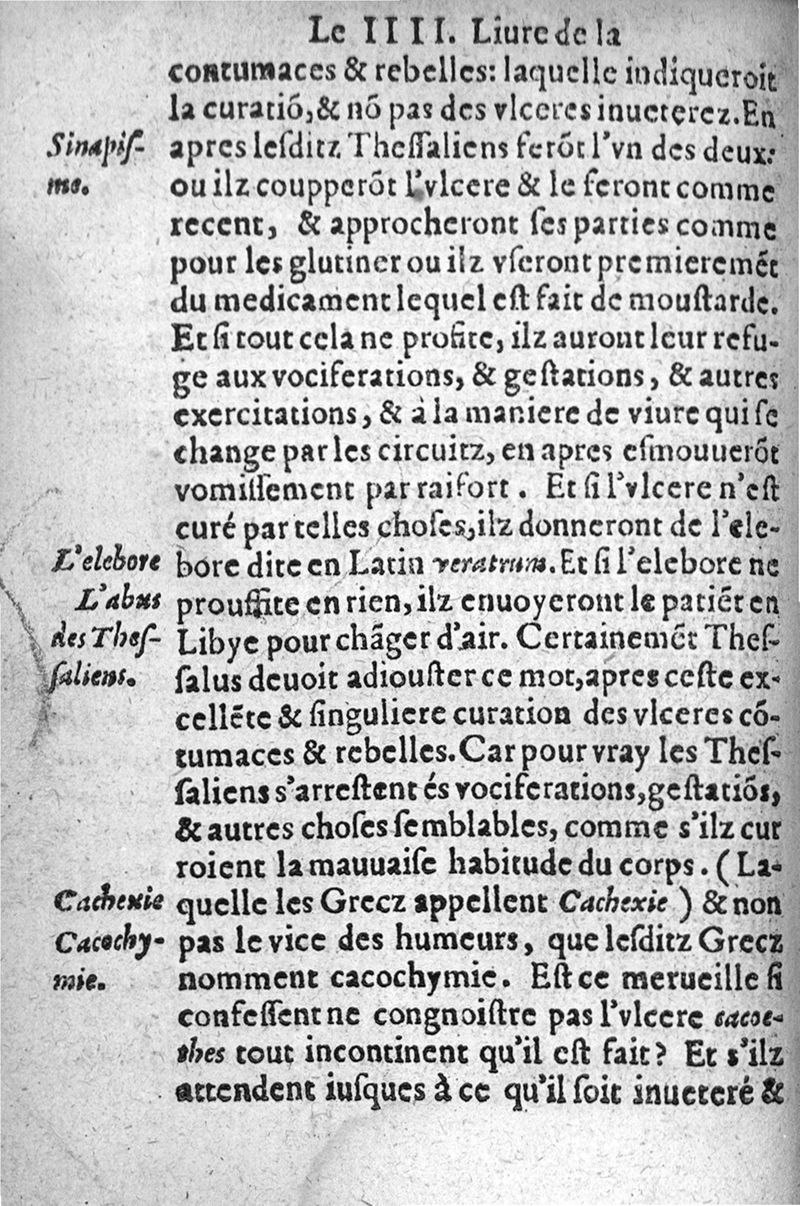 Le IIII. Liure de la
contumaces & rebelles: laquelle indiqueroit
la curatiõ, & nõ pas des vlceres inueterez. En
Sinapiſ-
apres leſditz Theſſaliens ferõt l'vn des deux:
me.
ou ilz coupperõt l'vlcere & le feront comme
recent, & approcheront ſes parties comme
pour les glutiner ou ilz vſeront premieremẽt
du medicament lequel eſt fait de mouſtarde.
Et ſi tout cela ne profite, ilz auront leur refu-
ge aux vociferations, & geſtations, & autres
exercitations, & à la maniere de viure qui ſe
change par les circuitz, en apres eſmouuerõt
vomiſſement par raifort. Et ſi l'vlcere n'eſt
curé par telles choſes, ilz donneront de l'ele-
L'elebore
bore dite en Latin veratrum. Et ſi l'elebore ne
L'abus
prouffite en rien, ilz enuoyeront le patiẽt en
des Theſ-
Libye pour chãger d'air. Certainemẽt Theſ-
ſaliens.
ſalus deuoit adiouſter ce mot, apres ceſte ex-
cellẽte & ſinguliere curation des vlceres cõ-
tumaces & rebelles. Car pour vray les Theſ-
ſaliens s'arreſtent és vociferations, geſtatiõs,
& autres choſes ſemblables, comme s'ilz cur
roient la mauuaiſe habitude du corps. (La-
Cachexie
quelle les Grecz appellent Cachexie) & non
Cacochy-
pas le vice des humeurs, que leſditz Grecz
mie.
nomment cacochymie. Eſt ce merueille ſi
confeſſent ne congnoiſtre pas l'vlcere cacoe-
thes tout incontinent qu'il eſt fait? Et s'ilz
attendent iuſques à ce qu'il ſoit inueteré &